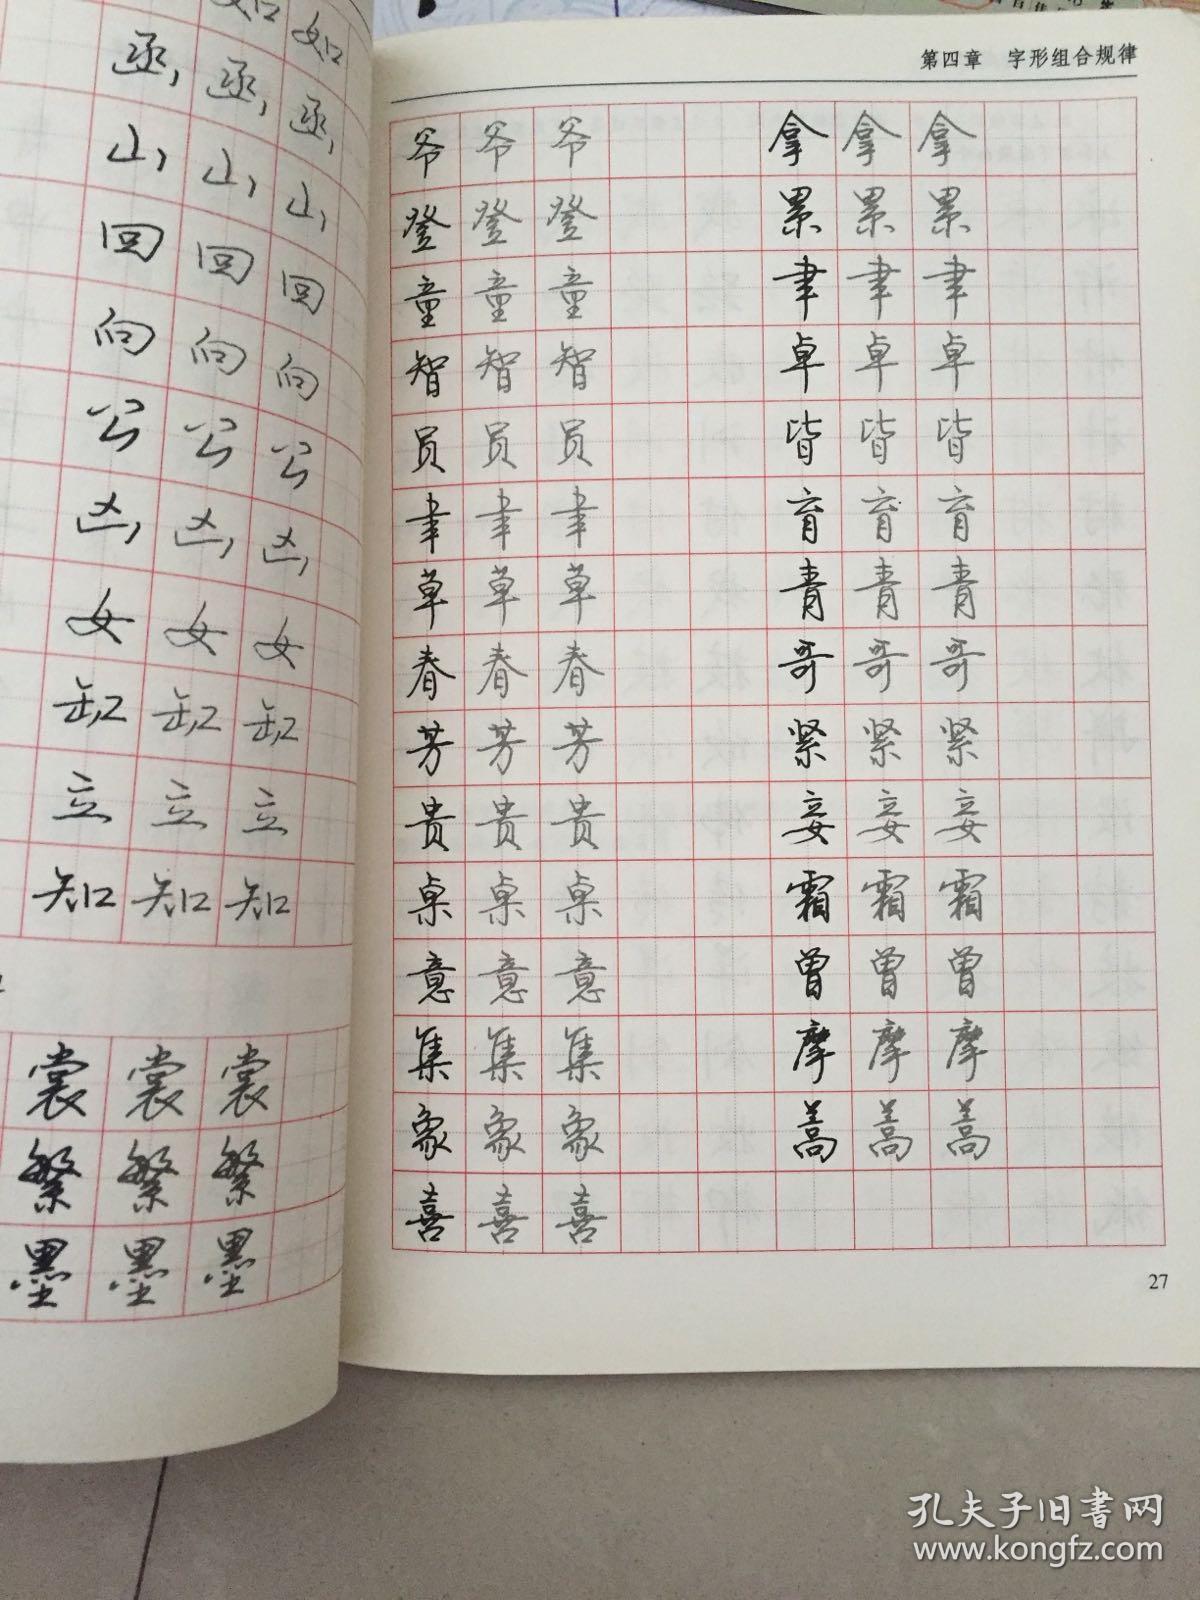 如 如
函 函 函
山 山 山
回 回 回
向 向 向
公 公 公
凶 凶 凶
女 女 女
缸 缸 缸
立 立 立
知 知 知
裳 裳 裳
繁 繁 繁
墨 墨 墨
第四章 字形组合规律
爷 爷 爷 拿 拿 拿
登 登 登 累 累 累
童 童 童 聿 聿 聿
智 智 智 卓 卓 卓
员 员 员 皆 皆 皆
聿 聿 聿 育 育 育
草 草 草 青 青 青
春 春 春 哥 哥 哥
芳 芳 芳 紧 紧 紧
贵 贵 贵 妾 妾 妾
桌 桌 桌 霜 霜 霜
意 意 意 曾 曾 曾
集 集 集 摩 摩 摩
象 象 象 蒿 蒿 蒿
喜 喜 喜
27
孔夫子旧书网
www.kongfz.com